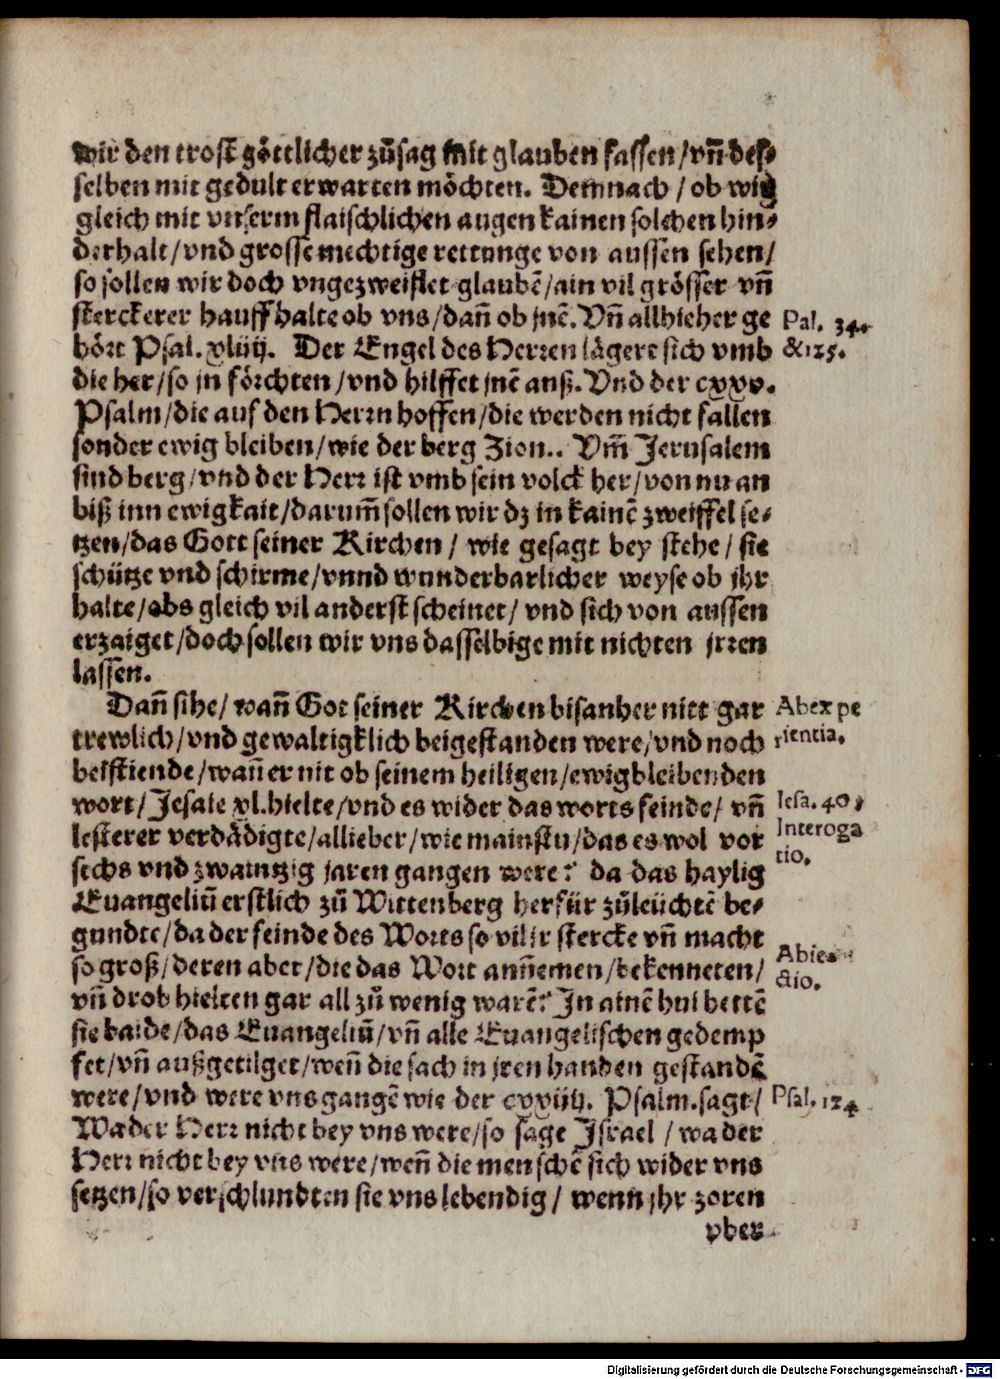 wir den trost göttlicher zůsag mit glauben fassen/vñ des⸗
selben mit gedult erwarten möchten. Demnach/ob wir
gleich mit vnserm flaischlichen augen kainen solchen hin⸗
derhalt/vnd grosse mechtige rettunge von aussen sehen/
so sollen wir doch vngezweiflet glaubē/ain vil grösser vñ
sterckerer hauff halte ob vns/dañ ob jnē. Vñ allhieher ge
hört Psal. xliiij. Der Engel des Herren lägert sich vmb
die her/so jn förchten/vnd hilffet jnē auß. Vnd der cxxv.
Psalm/die auf den Herrn hoffen/die werden nicht fallen
sonder ewig bleiben/wie der berg Zion.. Vm̃ Jerusalem
sind berg/vnd der Herr ist vmb sein volck her/von nu an
biß inn ewigkait/darum̃ sollen wir dz in kainē zweiffel se⸗
tzen/das Gott seiner Kirchen/ wie gesagt bey stehe/ sie
schütze vnd schirme/vnnd wunderbarlicher weyse ob jhr
halte/obs gleich vil anderst scheinet/ vnd sich von aussen
erzaiget/doch sollen wir vns dasselbige mit nichten jrren
lassen.
Dañ sihe/wañ Got seiner Kirchen bisanher nitt gar
trewlich/vnd gewaltigklich beigestanden were/vnd noch
beistiende/wañ er nit ob seinem heiligen/ewigbleibenden
wort/Jesaie xl. hielte/vnd es wider das worts feinde/ vñ
lesterer verdädigte/allieber/wie mainstu/das es wol vor
sechs vnd zwaintzig jaren gangen were? da das haylig
Euangeliũ erstlich zů Wittenberg herfür zůleüchtē be⸗
gundte/da der feinde des Worts so vil jr stercke vñ macht
so groß/deren aber/die das Wort anñemen/bekenneten/
vñ drob hielten gar all zů wenig warē? In ainē hui hettē
sie baide/das Euangeliũ/vñ alle Euangelischen gedemp
fet/vñ außgetilget/weñ die sach in jren handen gestandē
were/vnd were vns gangē wie der cxxiiij. Psalm. sagt/
Wa der Herr nicht bey vns were/so sage Jsrael/wa der
Herr nicht bey vns were/weñ die menschē sich wider vns
setzen/so verschlundten sie vns lebendig/ wenn jhr zoren
vber
Pal. 34.
&125.
Ab expe
rientia.
Iesa. 40,
Interoga
tio.
Abie
ctio.
Psal. 124
Digitalisierung gefördert durch die Deutsche Forschungsgemeinschaft - DFG